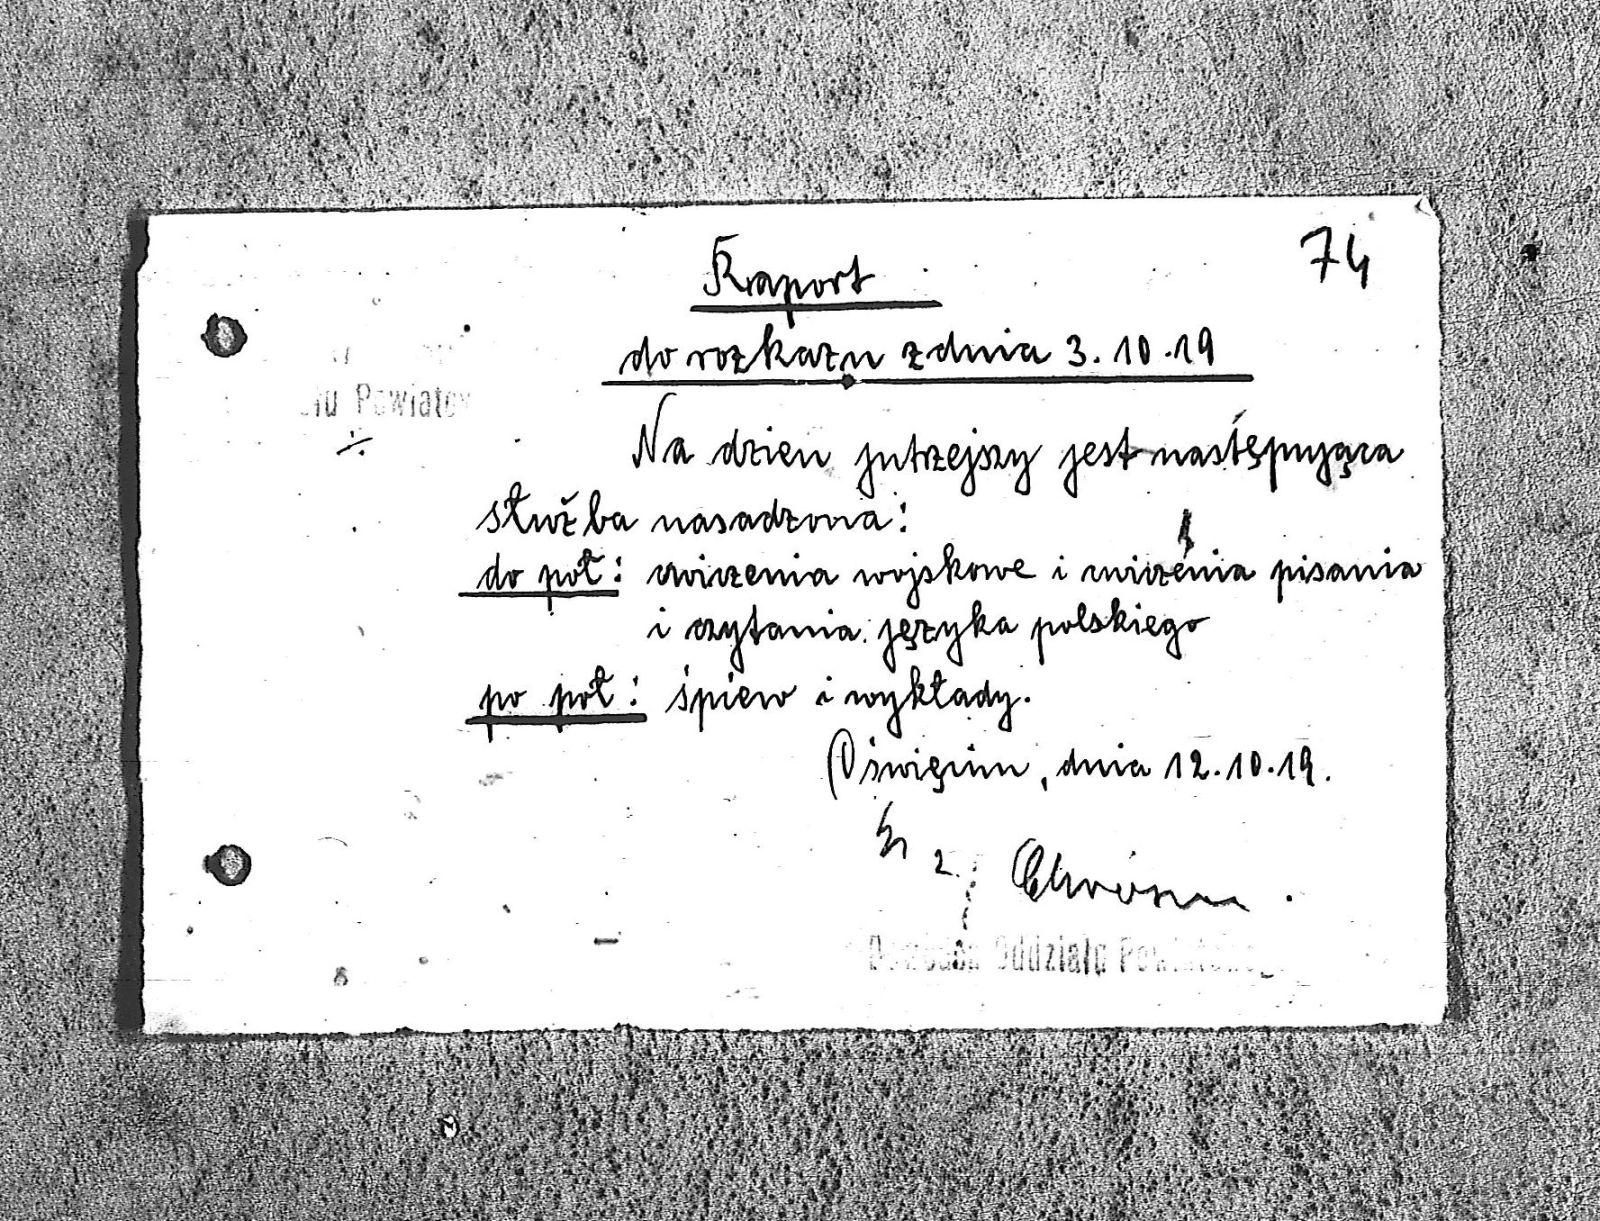 74
Raport
do rozkazu z dnia 3.10.19
Powiatow
Na dzien jutrzejszy jest następująca
służba nasadzona:
do poł: cwiczenia wojskowe i cwiczenia pisania
i czytania języka polskiego
po poł: śpiew i wykłady.
Oświęcim, dnia 12.10.19.
Dowódca Oddziału Powiatowego